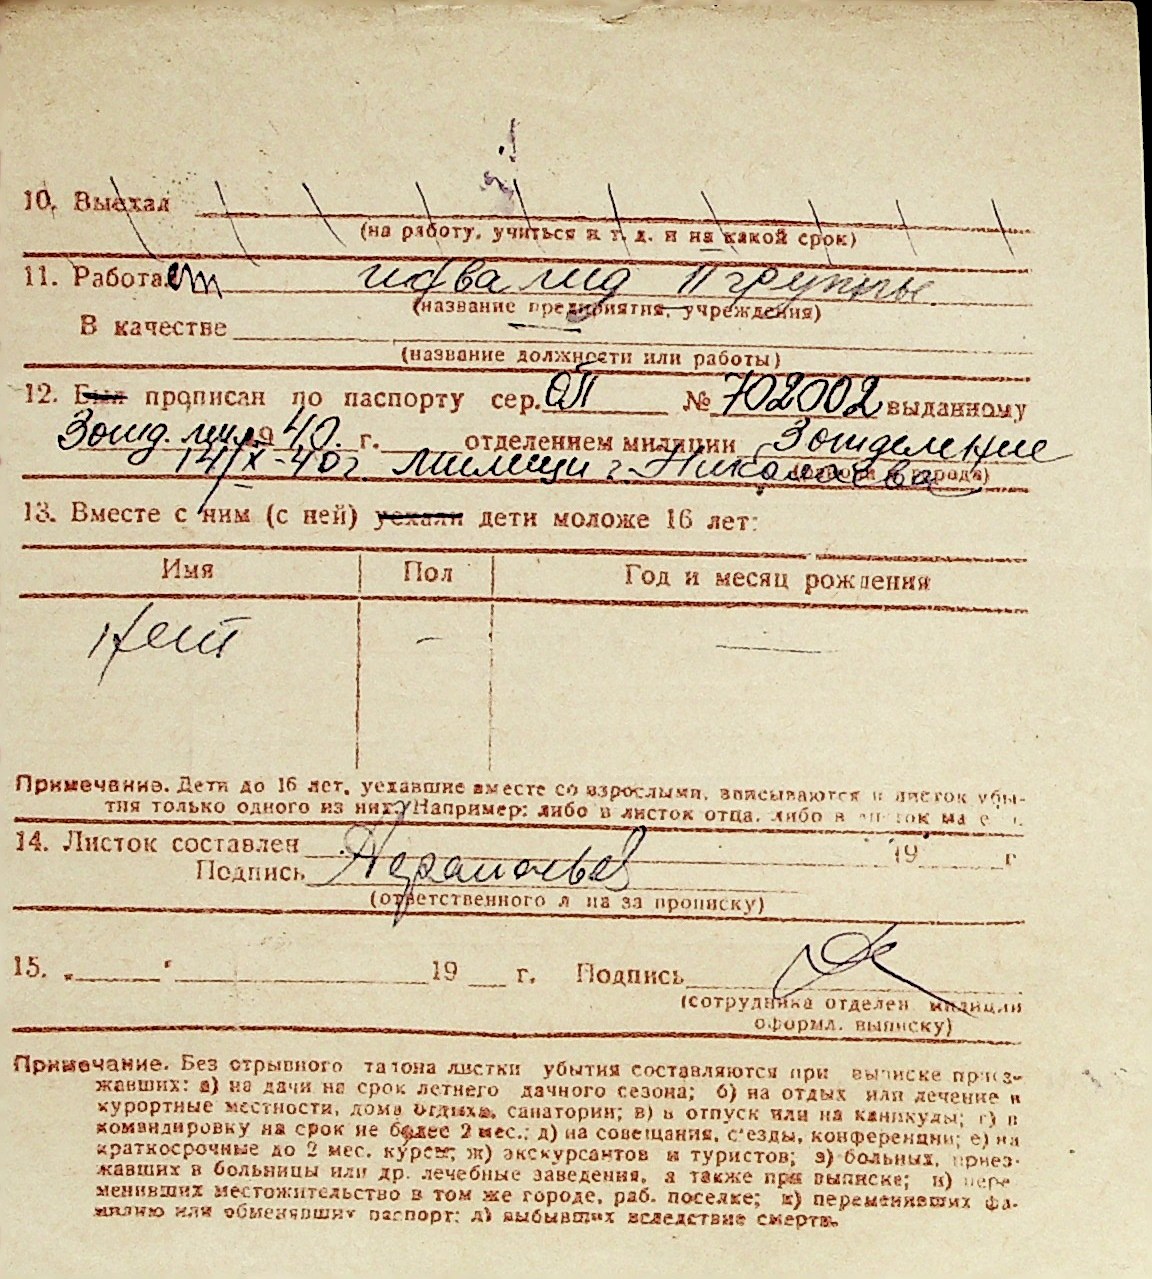 10. Выехал
(на работу, учиться и т. д. и на какой срок)
11. Работает инвалид II группы
(название предприятия, учреждения)
В качестве —
(название должности или работы)
12. Был прописан по паспорту сер. ОП № 702002 выданному
3 отд. мил. 19 40 г. отделением милиции 3 отделение
14/IX-40 г. милиции г. Николаева
13. Вместе с ним (с ней) уехали дети моложе 16 лет:
Имя Пол Год и месяц рождения
Нет — —
Примечание. Дети до 16 лет, уехавшие вместе со взрослыми, вписываются в листок убы-
тия только одного из них. Например: либо в листок отца, либо в листок
14. Листок составлен 19 г.
Подпись
(ответственного лица за прописку)
15. „ “ 19 г. Подпись
(сотрудника отделен. милиции
оформл. выписку)
Примечание. Без отрывного талона листки убытия составляются при выписке приез-
жавших: а) на дачи на срок летнего дачного сезона; б) на отдых или лечение в
курортные местности, дома отдыха, санатории; в) в отпуск или на каникулы; г) в
командировку на срок не более 2 мес.; д) на совещания, с'езды, конференции; е) на
краткосрочные до 2 мес. курсы; ж) экскурсантов и туристов; з) больных, приез-
жавших в больницы или др. лечебные заведения, а также при выписке; и) пере-
менивших местожительство в том же городе, раб. поселке; к) переменивших фа-
милию или обменявших паспорт; л) выбывших вследствие смерти.